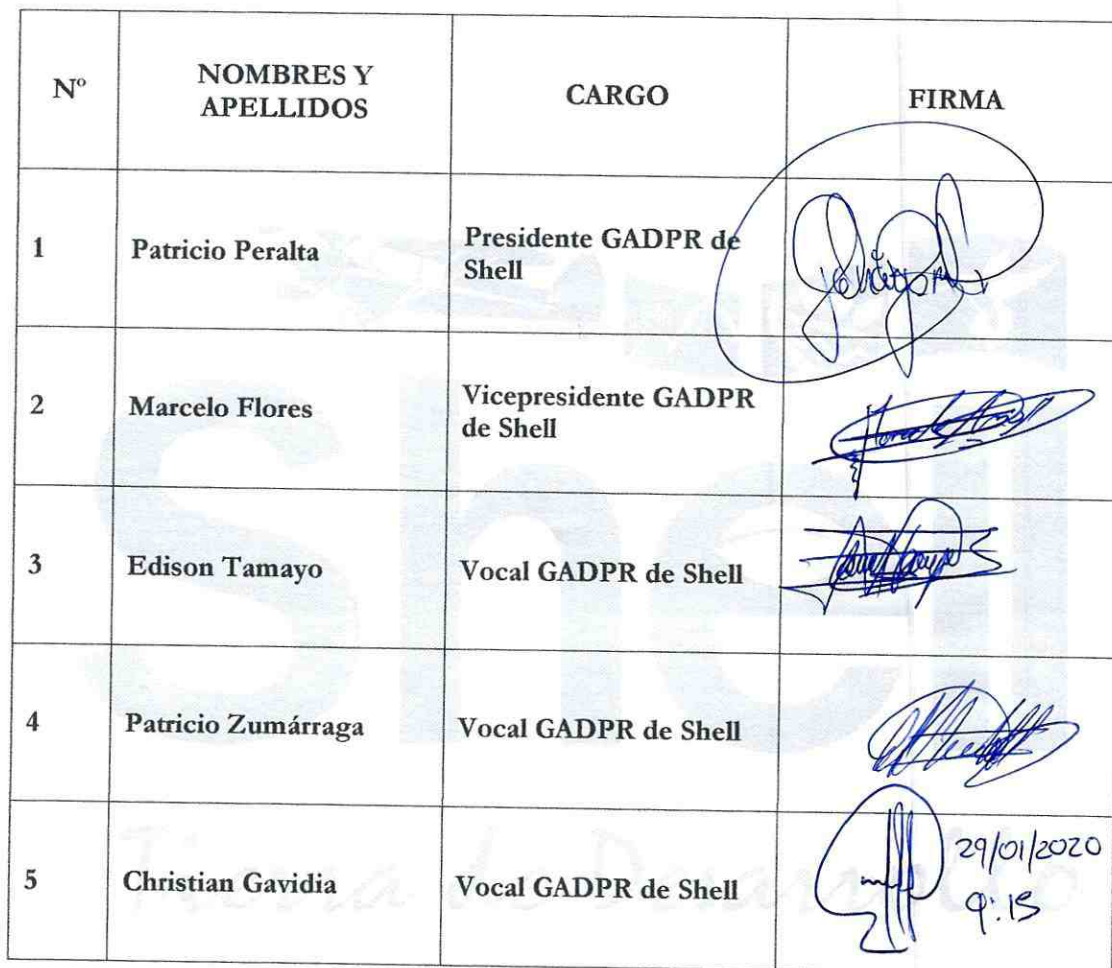 Nº
NOMBRES Y
APELLIDOS
CARGO
FIRMA
1
Patricio Peralta
Presidente GADPR de
Shell
2
Marcelo Flores
Vicepresidente GADPR
de Shell
3
Edison Tamayo
Vocal GADPR de Shell
4
Patricio Zumárraga
Vocal GADPR de Shell
5
Christian Gavidia
Vocal GADPR de Shell
29/01/2020
9:15
Shell
Tierra de Desarrollo